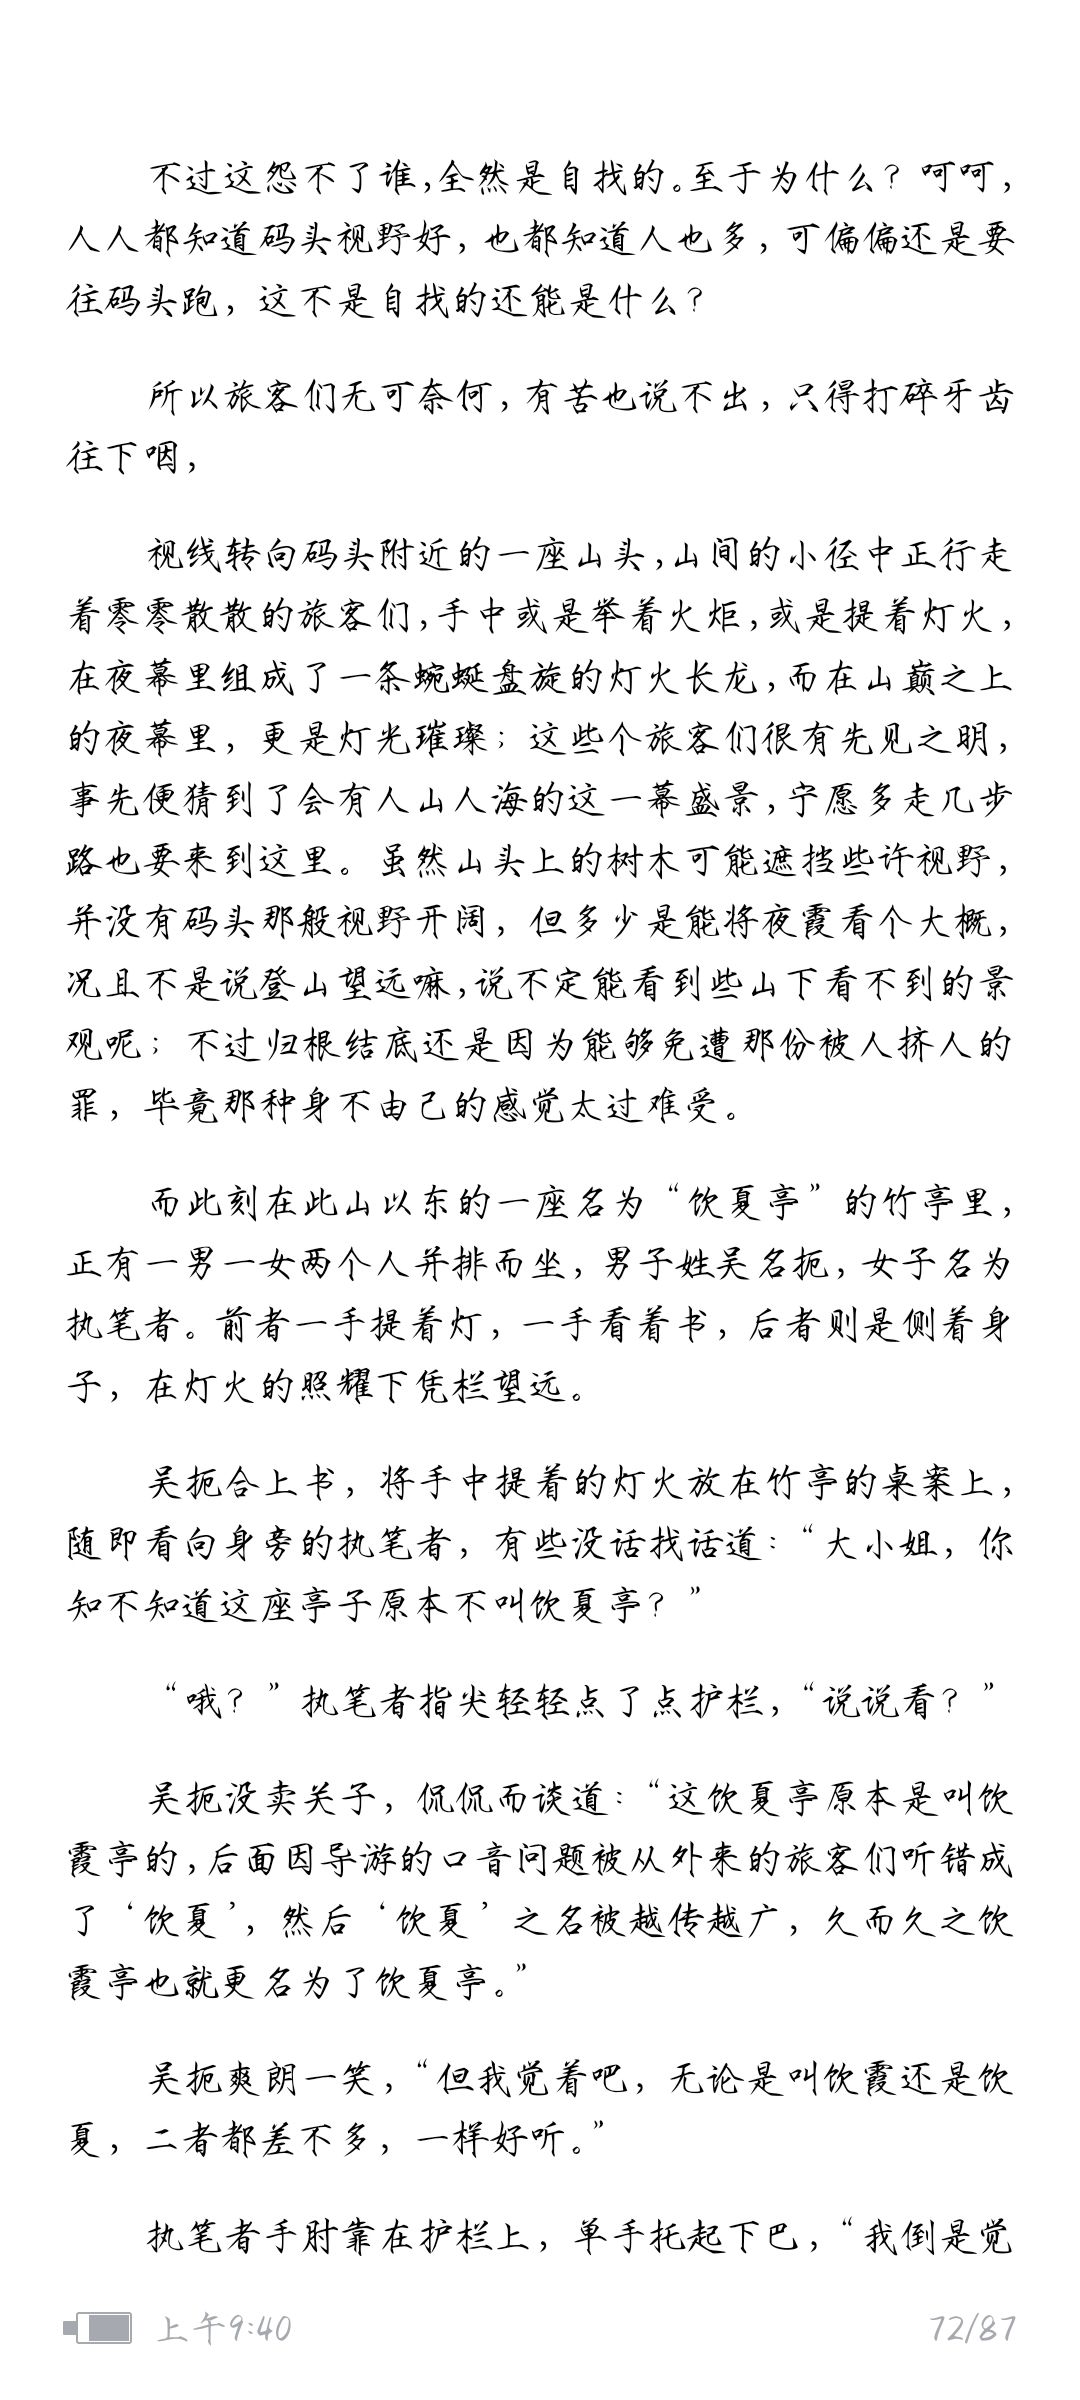 不过这怨不了谁，全然是自找的。至于为什么？呵呵，
人人都知道码头视野好，也都知道人也多，可偏偏还是要
往码头跑，这不是自找的还能是什么？
所以旅客们无可奈何，有苦也说不出，只得打碎牙齿
往下咽，
视线转向码头附近的一座山头，山间的小径中正行走
着零零散散的旅客们，手中或是举着火炬，或是提着灯火，
在夜幕里组成了一条蜿蜒盘旋的灯火长龙，而在山巅之上
的夜幕里，更是灯光璀璨；这些个旅客们很有先见之明，
事先便猜到了会有人山人海的这一幕盛景，宁愿多走几步
路也要来到这里。虽然山头上的树木可能遮挡些许视野，
并没有码头那般视野开阔，但多少是能将夜霞看个大概，
况且不是说登山望远嘛，说不定能看到些山下看不到的景
观呢；不过归根结底还是因为能够免遭那份被人挤人的
罪，毕竟那种身不由己的感觉太过难受。
而此刻在此山以东的一座名为“饮夏亭”的竹亭里，
正有一男一女两个人并排而坐，男子姓吴名扼，女子名为
执笔者。前者一手提着灯，一手看着书，后者则是侧着身
子，在灯火的照耀下凭栏望远。
吴扼合上书，将手中提着的灯火放在竹亭的桌案上，
随即看向身旁的执笔者，有些没话找话道：“大小姐，你
知不知道这座亭子原本不叫饮夏亭？”
“哦？”执笔者指尖轻轻点了点护栏，“说说看？”
吴扼没卖关子，侃侃而谈道：“这饮夏亭原本是叫饮
霞亭的，后面因导游的口音问题被从外来的旅客们听错成
了‘饮夏’，然后‘饮夏’之名被越传越广，久而久之饮
霞亭也就更名为了饮夏亭。”
吴扼爽朗一笑，“但我觉着吧，无论是叫饮霞还是饮
夏，二者都差不多，一样好听。”
执笔者手肘靠在护栏上，单手托起下巴，“我倒是觉
上午9:40
72/87